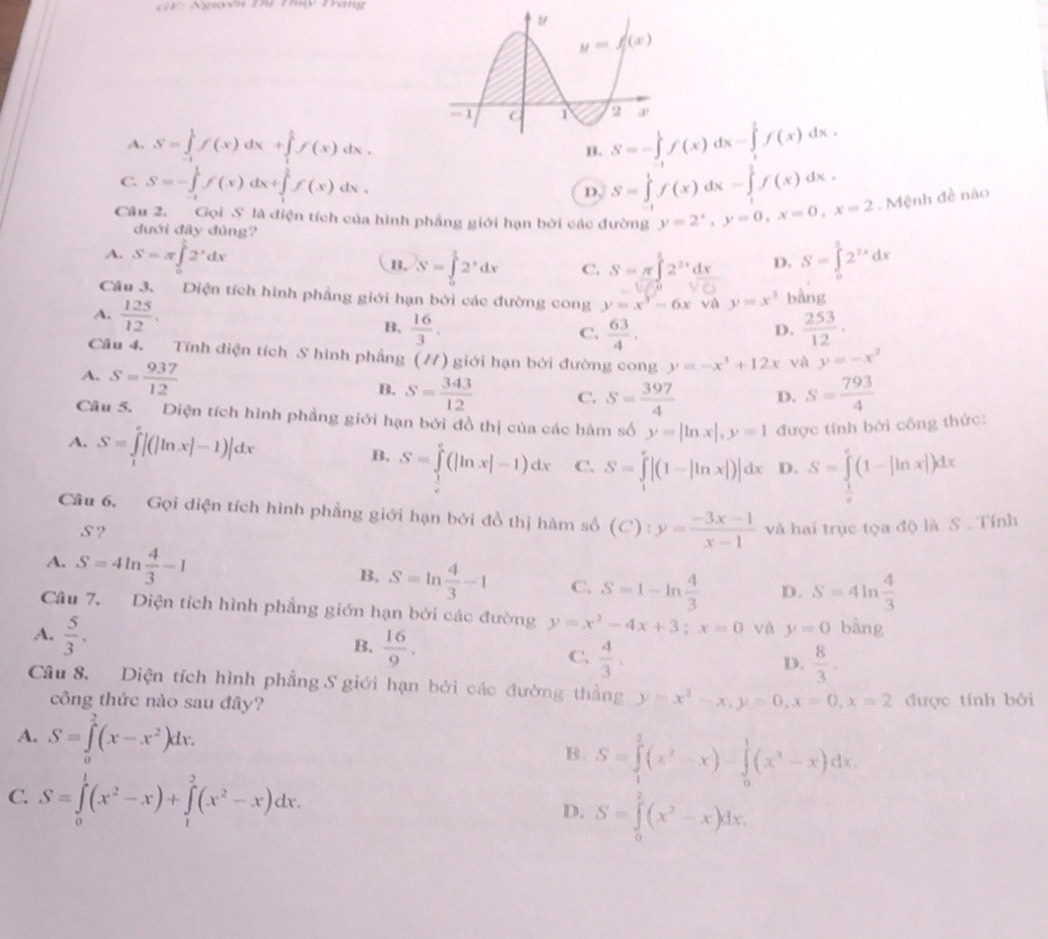 GV: Nguyễn Thị Thúy Trang
y
y = f(x)
-1 O 1 2 x
A. S = ∫₋₁¹ f(x) dx + ∫₁² f(x) dx .
B. S = -∫₋₁¹ f(x) dx - ∫₁² f(x) dx .
C. S = -∫₋₁¹ f(x) dx + ∫₁² f(x) dx .
D. S = ∫₋₁¹ f(x) dx - ∫₁² f(x) dx .
Câu 2. Gọi S là diện tích của hình phẳng giới hạn bởi các đường y = 2ˣ, y = 0, x = 0, x = 2 . Mệnh đề nào
dưới đây đúng?
A. S = π∫₀² 2ˣ dx B. S = ∫₀² 2ˣ dx C. S = π∫₀² 2²ˣ dx D. S = ∫₀² 2²ˣ dx
Câu 3. Diện tích hình phẳng giới hạn bởi các đường cong y = x³ - 6x và y = x² bằng
A. 125/12 . B. 16/3 . C. 63/4 . D. 253/12 .
Câu 4. Tính diện tích S hình phẳng (H) giới hạn bởi đường cong y = -x³ + 12x và y = -x²
A. S = 937/12 B. S = 343/12 C. S = 397/4 D. S = 793/4
Câu 5. Diện tích hình phẳng giới hạn bởi đồ thị của các hàm số y = |ln x|, y = 1 được tính bởi công thức:
A. S = ∫₁ᵉ |(|ln x| - 1)| dx B. S = ∫_{1/e}^{e} (|ln x| - 1) dx C. S = ∫₁ᵉ |(1 - |ln x|)| dx D. S = ∫_{1/e}^{e} (1 - |ln x|) dx
Câu 6. Gọi diện tích hình phẳng giới hạn bởi đồ thị hàm số (C): y = (-3x - 1)/(x - 1) và hai trục tọa độ là S . Tính
S?
A. S = 4 ln 4/3 - 1 B. S = ln 4/3 - 1 C. S = 1 - ln 4/3 D. S = 4 ln 4/3
Câu 7. Diện tích hình phẳng giớn hạn bởi các đường y = x² - 4x + 3 ; x = 0 và y = 0 bằng
A. 5/3 . B. 16/9 . C. 4/3 . D. 8/3 .
Câu 8. Diện tích hình phẳng S giới hạn bởi các đường thẳng y = x² - x, y = 0, x = 0, x = 2 được tính bởi
công thức nào sau đây?
A. S = ∫₀² (x - x²)dx.
B. S = ∫₁² (x² - x) - ∫₀¹ (x² - x) dx.
C. S = ∫₀¹ (x² - x) + ∫₁² (x² - x) dx.
D. S = ∫₀² (x² - x)dx.